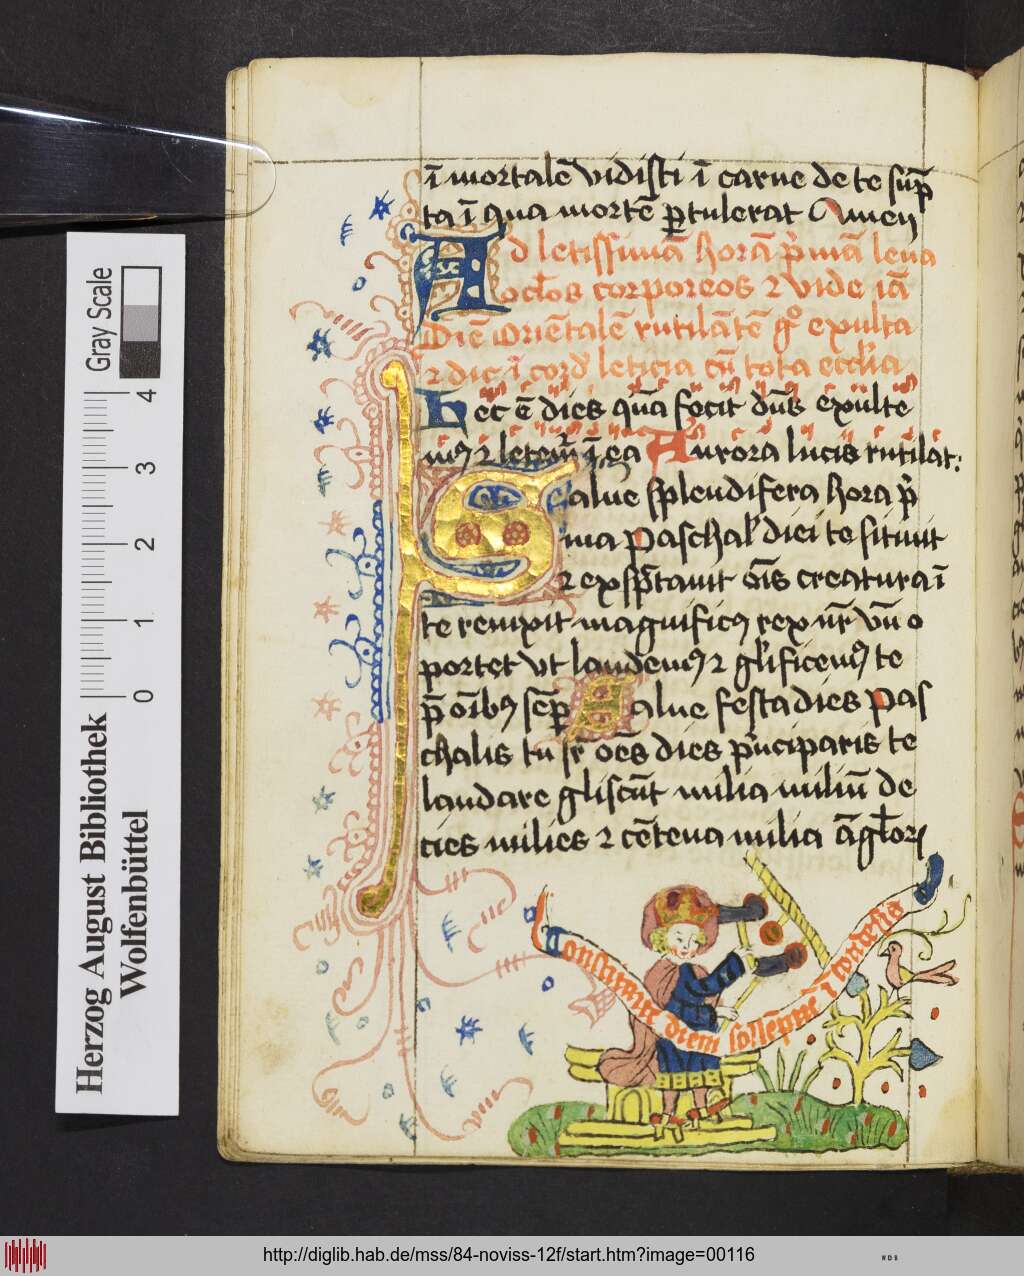 i̅mortale̅ vidisti i̅ carne de te su̅p
ta i̅ qua morte̅ ꝑtulerat Amen
Ad letissima̅ hora̅ p̍ma̅ leua
oc̅los corporeos ⁊ vide ia̅
Die̅ orie̅tale̅ rutila̅te̅ gͦ exulta
⁊ dic i̅ cord̕ leticia cu̅ tota eccl̕ia
Hec e̅ dies qua̅ fecit dn̅s exulte
mꝯ ⁊ letem̕ i̅ ea Aurora lucis rutilat:
Salue splendifera hora p̍
ma paschal̕ diei te sitiuit
⁊ exspc̅tauit o̅is creatura i̅
te remixit magnificꝯ rex nr̅ vn̅ o
portet vt laudemꝯ ⁊ gl̕ificemꝯ te
p̅ o̅ibꝯ se̅ꝑ Salue festa dies pas
chalis tu sr̅ o̅es dies p̍nciparis te
laudare gliscu̅t milia miliu̅ de
cies milies ⁊ ce̅tena milia a̅gl̅oꝝ
Constituite diem solle̅pne̅ i co̅de̅sis
Herzog August Bibliothek
Wolfenbüttel
Gray Scale
0 1 2 3 4
http://diglib.hab.de/mss/84-noviss-12f/start.htm?image=00116
WDB